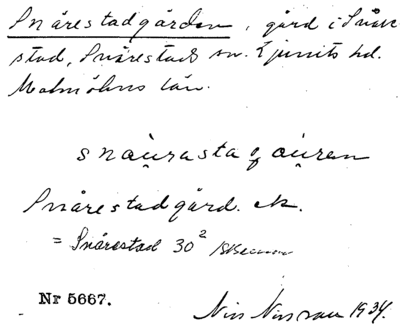 Snårestadgården, gård i Snåre-
stad, Snårestads sn. Ljunits hd.
Malmöhus län.
Snårestadgård. ek.
= Snårestad 30²
Nr 5667.
Nils Nilsson 1934.